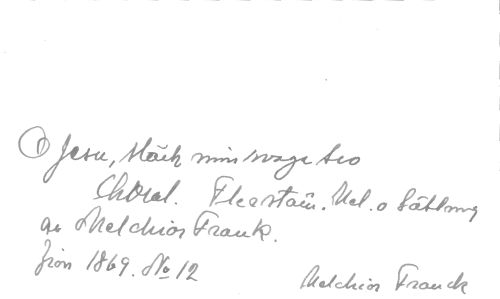 O Jesu, stärk min svaga tro
Choral. Flerstäm. Mel. o Sättning
av Melchior Frank.
från 1869. No 12
Melchior Franck